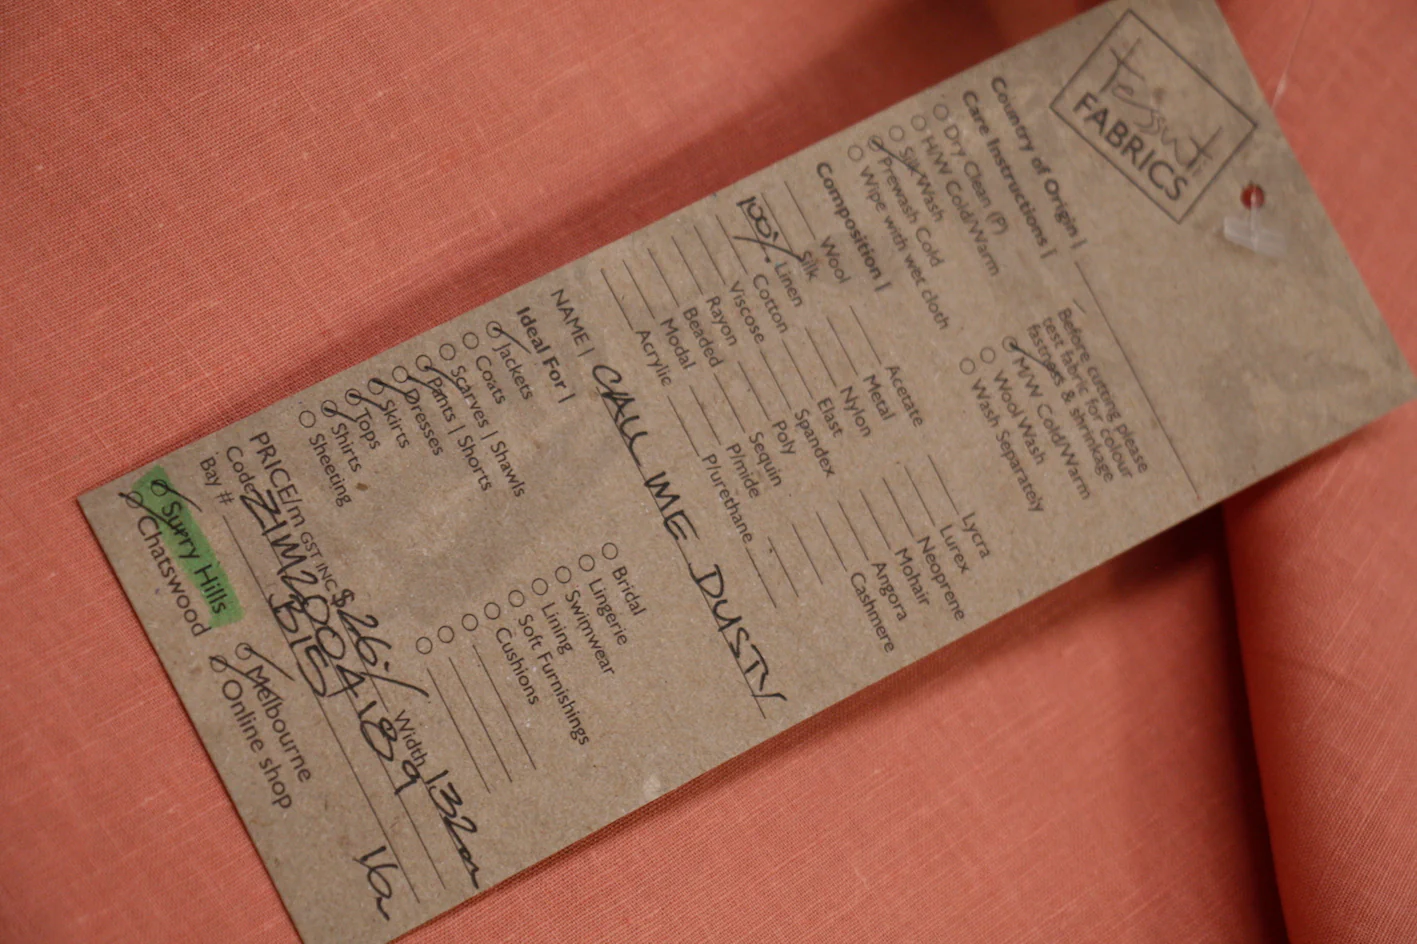 tessuti
FABRICS
Country of Origin |
Care Instructions |
Before cutting please
test fabric for colour
fastness & shrinkage
Dry Clean (P)
H/W Cold/Warm
Silk Wash
Prewash Cold
Wipe with wet cloth
M/W Cold/Warm
Wool Wash
Wash Separately
Composition |
Wool
Silk
100% Linen
Cotton
Viscose
Rayon
Beaded
Modal
Acrylic
Acetate
Metal
Nylon
Elast
Spandex
Poly
Sequin
P/mide
P/urethane
Lycra
Lurex
Neoprene
Mohair
Angora
Cashmere
NAME | CALL ME DUSTY
Ideal For |
Jackets
Coats
Scarves | Shawls
Pants | Shorts
Dresses
Skirts
Tops
Shirts
Sheeting
Bridal
Lingerie
Swimwear
Lining
Soft Furnishings
Cushions
PRICE/m GST INC $26 Width 132cm
Code
Bay #
Surry Hills
Chatswood
Melbourne
Online shop